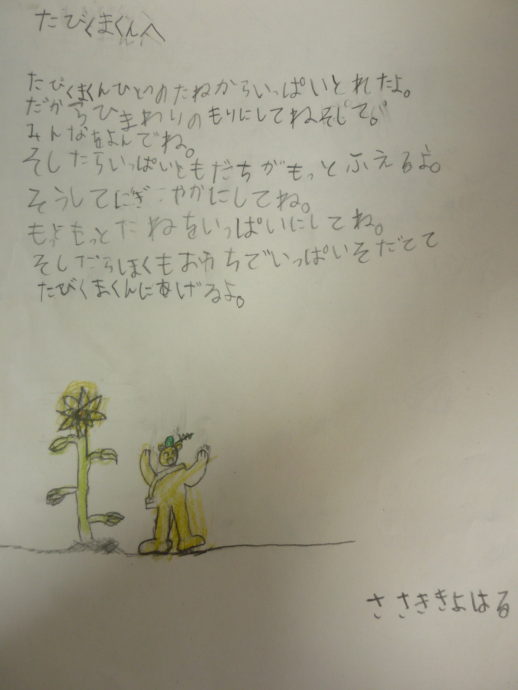 たびくまくんへ
たびくまくんひとつのたねからいっぱいとれたよ。
だからひまわりのもりにしてねそして
みんなをよんでね。
そしたらいっぱいともだちがもっとふえるよ。
そうしてにぎやかにしてね。
もともっとたねをいっぱいにしてね。
そしだらぼくもおうちでいっぱいそだてて
たびくまくんにあげるよ。
ささききよはる